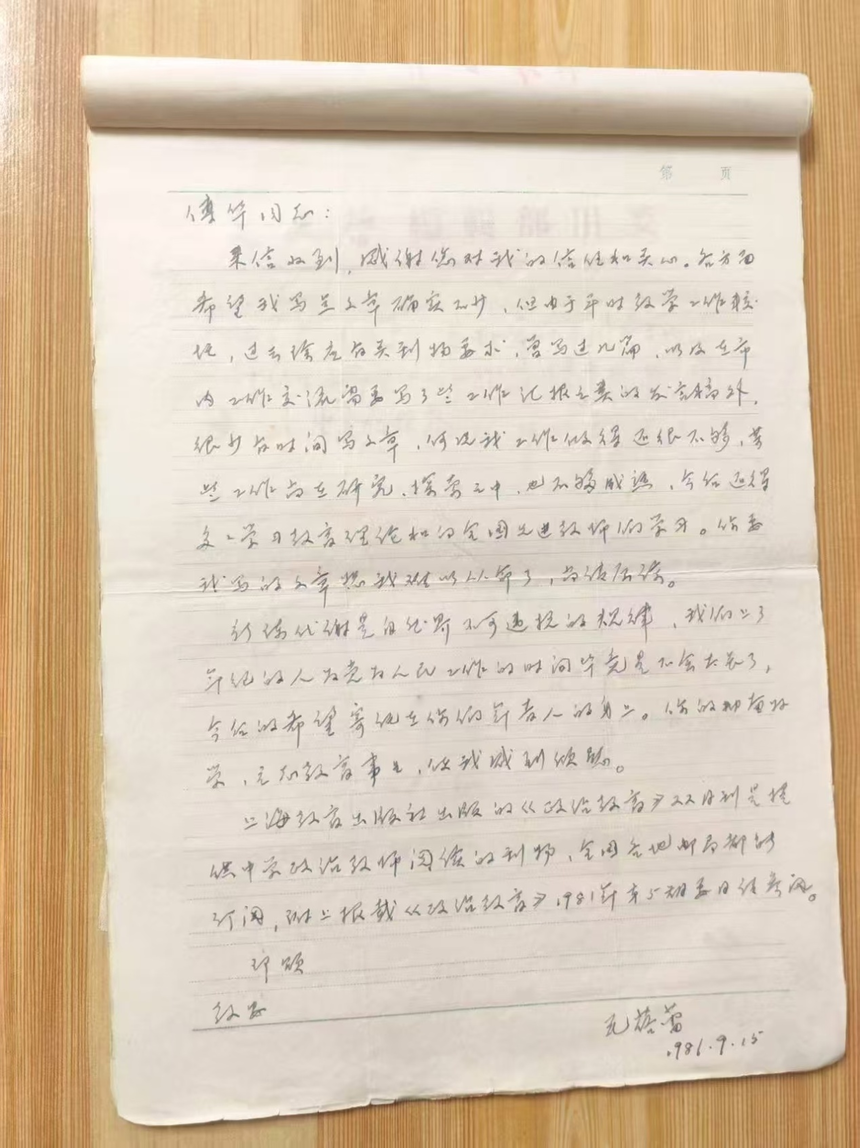 第 页
华同志：
来信收到，感谢您对我的信任和关心。各方面
希望我写些文章确实不少，但由于平时教学工作较
忙，过去除应有关刊物要求，曾写过几篇，以及在市
内工作交流需要写了些工作汇报之类的发言稿外，
很少有时间写文章，何况我工作做得还很不够，某
些工作尚在研究、探索之中，也不够成熟，今后还得
多多学习教育理论和向全国先进教师们学习。你要
我写的文章恕我难以从命了，尚请原谅。
新陈代谢是自然界不可违抗的规律，我们上了
年纪的人为党为人民工作的时间毕竟是不会太长了，
今后的希望寄托在你们年青人的身上。你的
学，立志教育事业，使我感到欣慰。
上海教育出版社出版的《政治教育》双月刊是提
供中学政治教师阅读的刊物，全国各地邮局都能
订阅，附上报载《政治教育》1981年第5期要目供参阅。
即颂
教安
1981.9.15